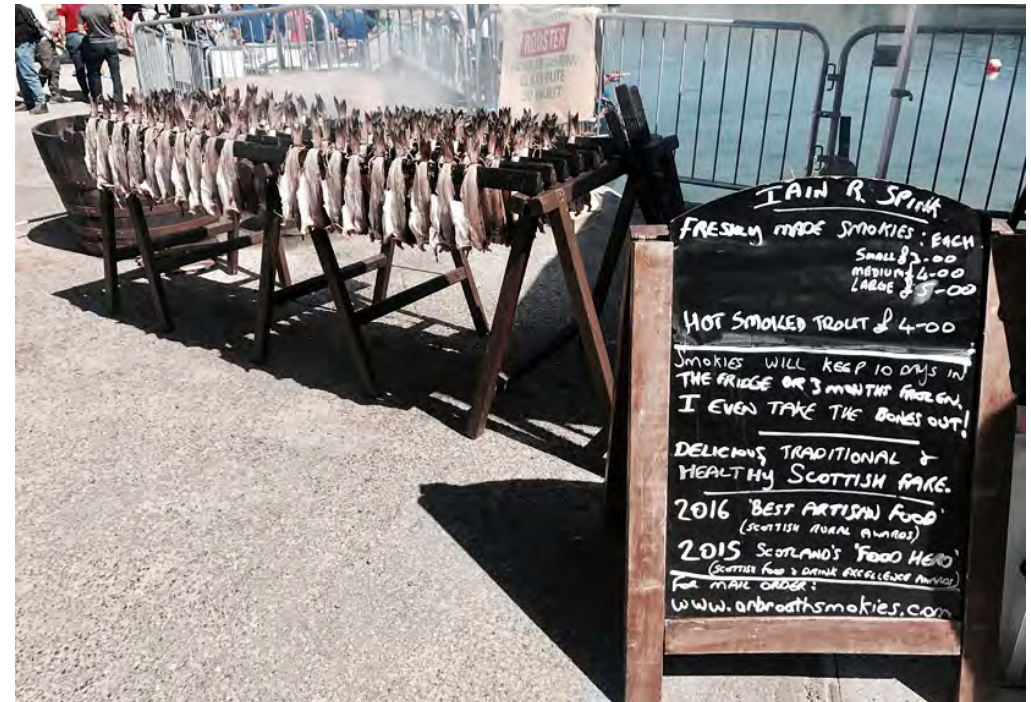 ROOSTER
IAIN R SPINK
FRESHLY MADE SMOKIES: EACH
SMALL £3-00
MEDIUM £4-00
LARGE £5-00
HOT SMOKED TROUT £4-00
SMOKIES WILL KEEP 10 DAYS IN
THE FRIDGE OR 3 MONTHS FROZEN.
I EVEN TAKE THE BONES OUT!
DELICIOUS TRADITIONAL &
HEALTHY SCOTTISH FARE.
2016 'BEST ARTISAN FOOD'
(SCOTTISH RURAL AWARDS)
2015 SCOTLAND'S 'FOOD HERO'
(SCOTTISH FOOD & DRINK EXCELLENCE AWARDS)
FOR MAIL ORDER:
www.arbroathsmokies.com